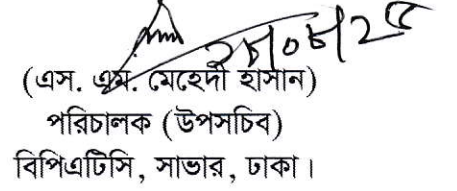 ২৮/০৮/২৫
(এস. এম. মেহেদী হাসান)
পরিচালক (উপসচিব)
বিপিএটিসি, সাভার, ঢাকা।